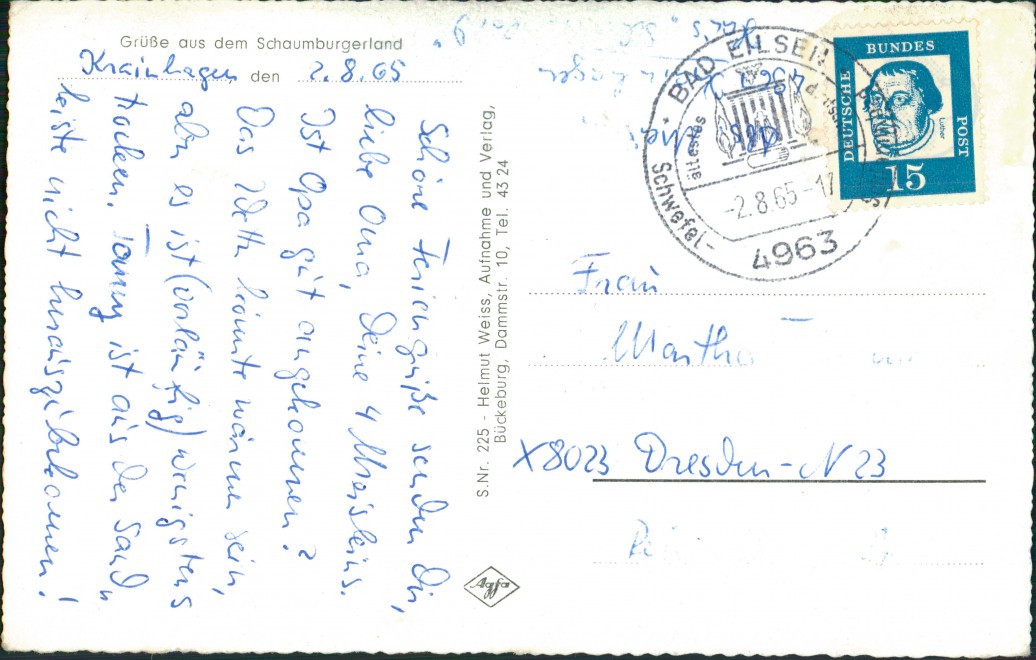 Grüße aus dem Schaumburgerland
Krainhagen den 2.8.65
Schöne Feriengrüße senden Dir,
liebe Oma, Deine 4 Meisleins.
Ist Opa gut angekommen?
Das Wetter könnte wärmer sein,
aber es ist (vorläufig) wenigstens
trocken. Tommy ist aus der Sand
leiste nicht herauszubekommen!
S.Nr. 225 - Helmut Weiss, Aufnahme und Verlag,
Bückeburg, Dammstr. 10, Tel. 43 24
Agfa
BAD EILSEN
ältestes
Schwefel-
-2.8.65-17
4963
DEUTSCHE
BUNDES
POST
Luther
15
Frau
Martha
X8023 Dresden-N 23